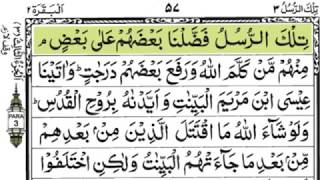 تِلْكَ الرُّسُلُ ٣
٥٧
اَلْبَقَرَة ٢
تِلْكَ الرُّسُلُ فَضَّلْنَا بَعْضَهُمْ عَلٰى بَعْضٍ ۘ
مِنْهُمْ مَّنْ كَلَّمَ اللّٰهُ وَرَفَعَ بَعْضَهُمْ دَرَجٰتٍ ؕ وَاٰتَيْنَا
عِيْسَى ابْنَ مَرْيَمَ الْبَيِّنٰتِ وَاَيَّدْنٰهُ بِرُوْحِ الْقُدُسِ ؕ
وَلَوْ شَآءَ اللّٰهُ مَا اقْتَتَلَ الَّذِيْنَ مِنْۢ بَعْدِهِمْ
مِّنْۢ بَعْدِ مَا جَآءَتْهُمُ الْبَيِّنٰتُ وَلٰكِنِ اخْتَلَفُوْا
PARA
3